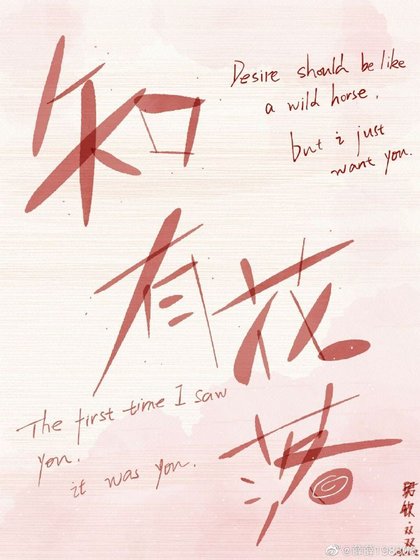 知
Desire should be like
a wild horse,
but i just
want you.
有花
The first time I saw
you.
it was you.
落